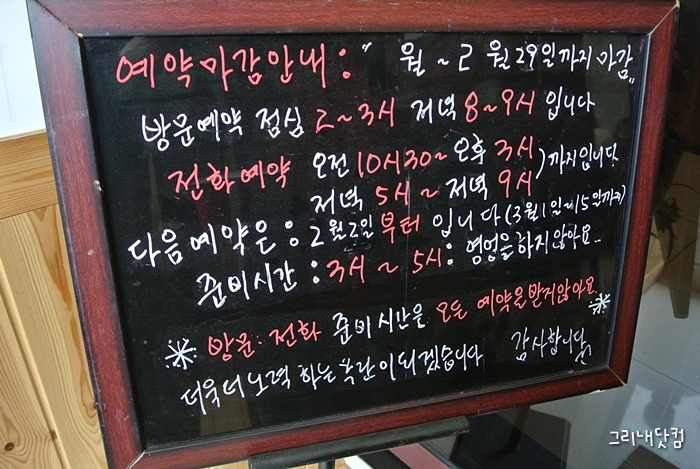 예약마감안내: 월~2월29일까지 마감
방문예약 점심 2~3시 저녁 8~9시 입니다
전화예약 오전 10시30~오후 3시
저녁 5시~저녁 9시 )까지입니다
다음예약은: 2월2일부터 입니다(3월1일~15일까지)
준비시간: 3시~5시: 영업을하지않아요..
※ 방문.전화 준비시간은 모든 예약을받지않아요 ※
더욱더노력 하는 이되겠습니다 감사합니다
그리내닷컴